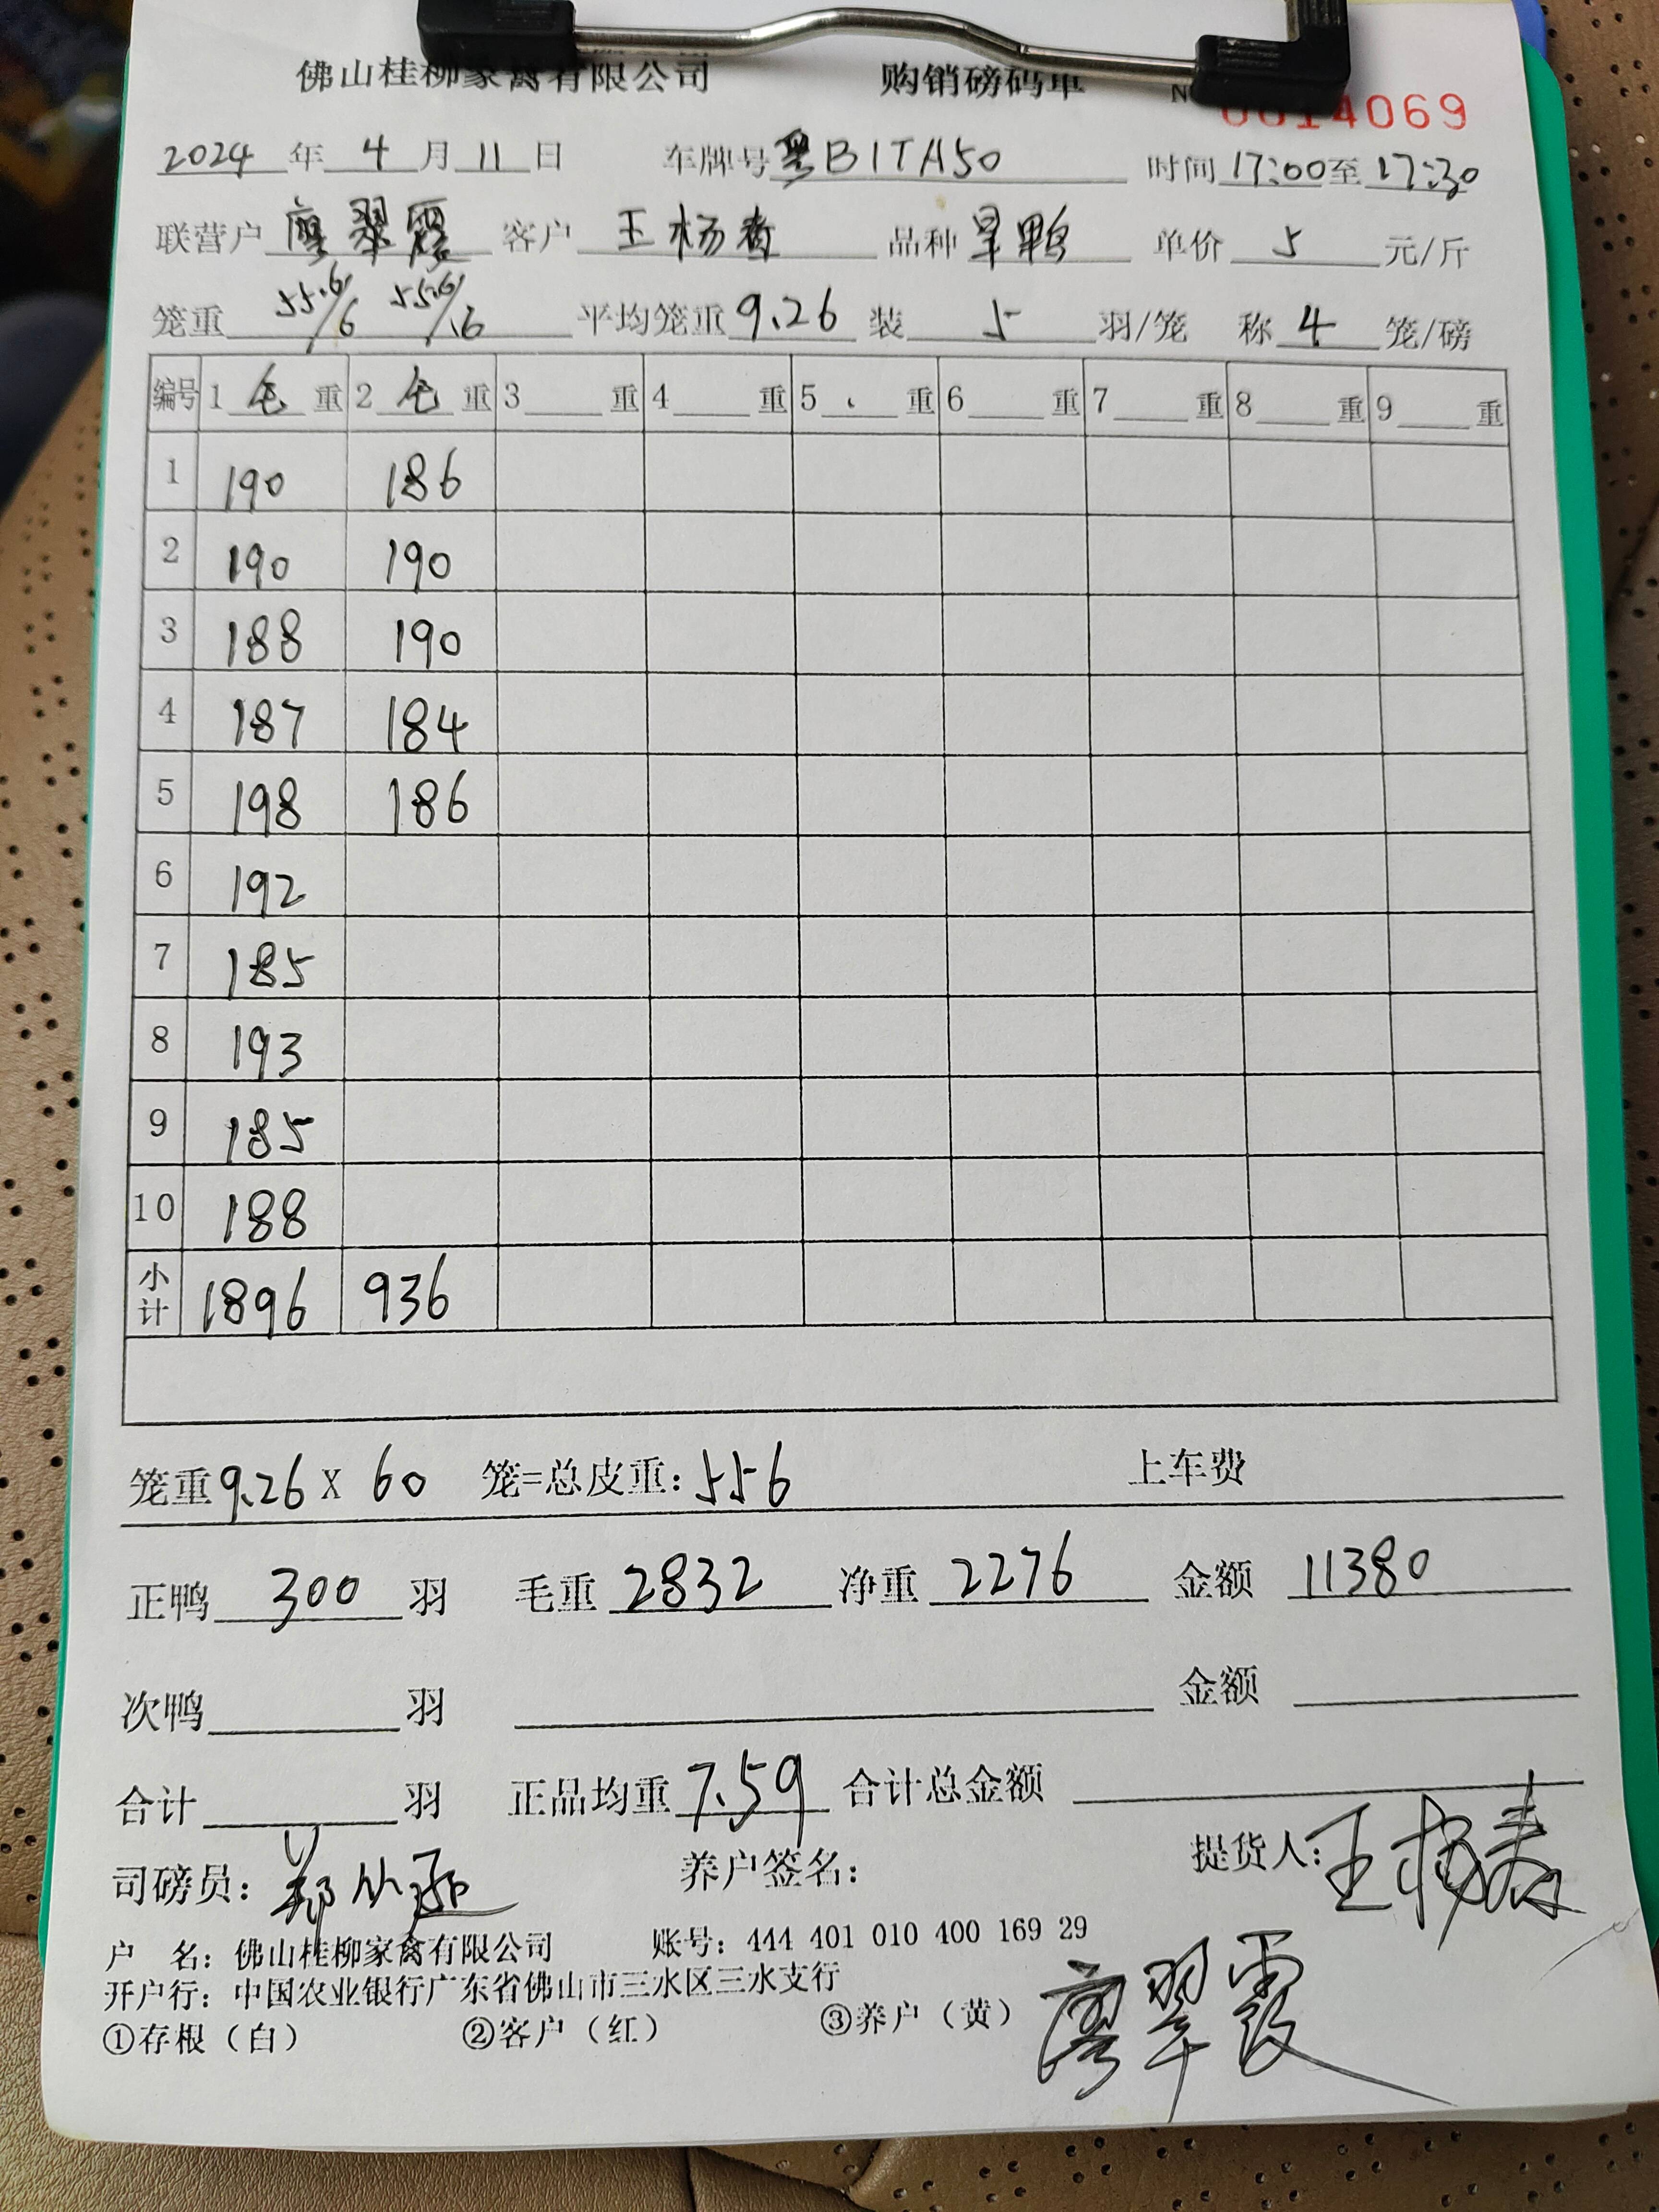 佛山桂柳家禽有限公司 购销磅码单 N 0014069
2024 年 4 月 11 日 车牌号 黑B1TA50 时间 17:00 至 17:30
联营户 廖翠霞 客户 王杨春 品种 旱鸭 单价 5 元/斤
笼重 55.6/6 55.6/.6 平均笼重 9.26 装 5 羽/笼 称 4 笼/磅
编号 1 毛 重 2 毛 重 3 重 4 重 5 重 6 重 7 重 8 重 9 重
1 190 186
2 190 190
3 188 190
4 187 184
5 198 186
6 192
7 185
8 193
9 185
10 188
小计 1896 936
笼重 9.26 X 60 笼=总皮重: 556 上车费
正鸭 300 羽 毛重 2832 净重 2276 金额 11380
次鸭 羽 金额
合计 羽 正品均重 7.59 合计总金额
司磅员: 养户签名: 提货人: 王杨春
户 名: 佛山桂柳家禽有限公司 账号: 444 401 010 400 169 29
开户行: 中国农业银行广东省佛山市三水区三水支行
①存根（白） ②客户（红） ③养户（黄） 廖翠霞